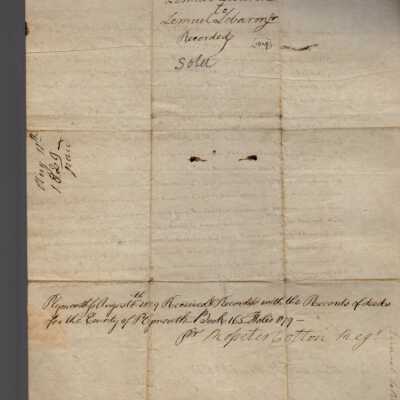 to
Lemuel Lebaron Jr
Recorded
Sold
Aug 11th
1829
Plymouth ss August 11th 1829 Received & Recorded with the Records of deeds
for the County of Plymouth Book 165 Folio
pr Rossiter Cotton Regr